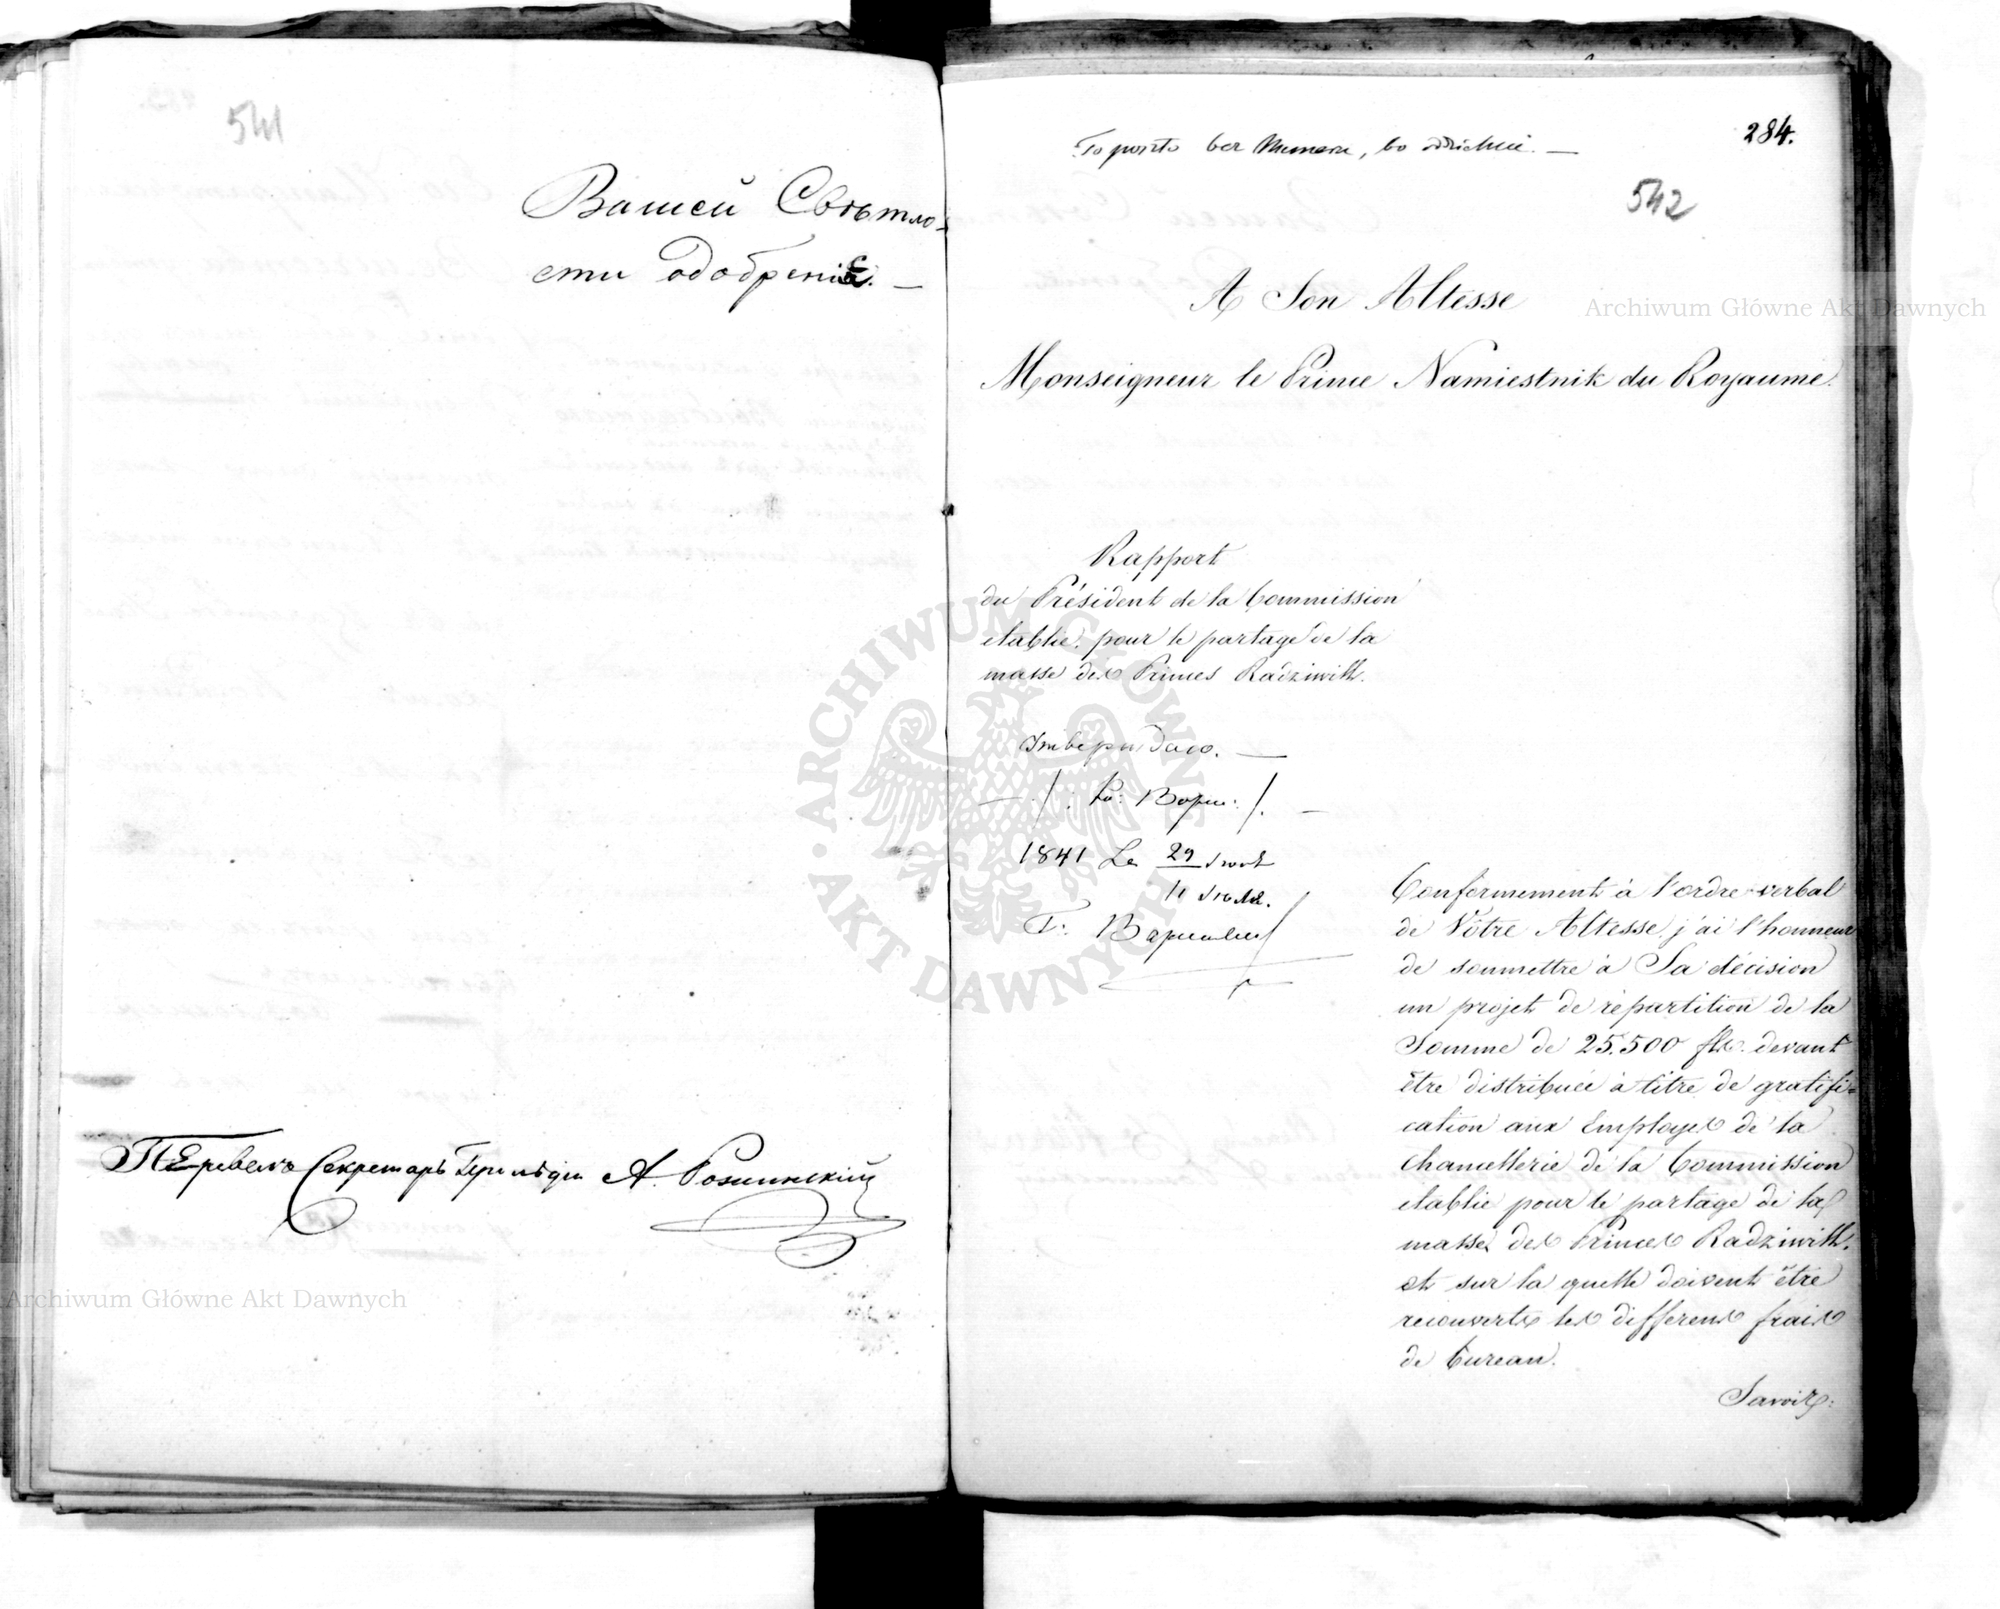 541
Вашей Свѣтло-
сти одобреніе. —
Перевелъ Секретарь А.
Archiwum Główne Akt Dawnych
284.
To poszło bez Numeru, bo
542
A Son Altesse
Archiwum Główne Akt Dawnych
Monseigneur le Prince Namiestnik du Royaume.
Rapport
du Président de la Commission
etablie pour le partage de la
masse des Princes Radziwill.
ARCHIWUM GŁÓWNE AKT DAWNYCH
Утверждаю. —
1841 Le 29
Conformement à l'ordre verbal
de Vôtre Altesse j'ai l'honneur
de soumettre à Sa décision
un projet de répartition de la
Somme de 25.500 fls. devant
être distribuée à titre de gratifi=
cation aux Employés de la
Chancellerie de la Commission
etablie pour le partage de la
masse des Princes Radziwill.
et sur la quelle doivent être
recouverts les differens frais
de bureau.
Savoir: